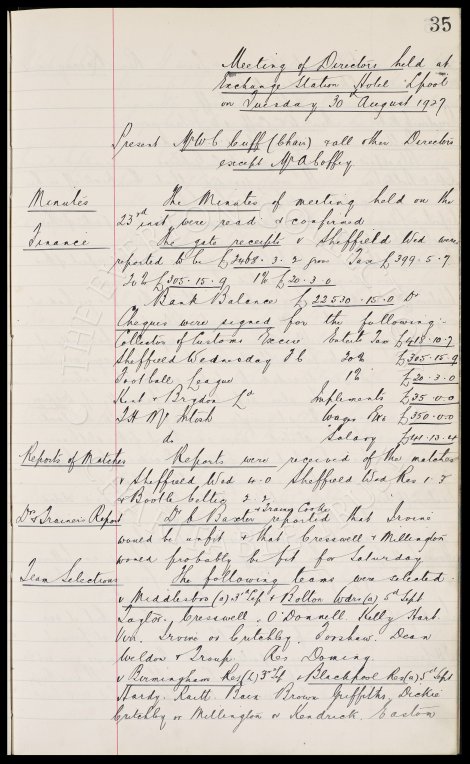 35
Meeting of Directors held at
Exchange Station Hotel L'pool
on Tuesday 30 August 1927
Present Mr W C Cuff (Chair) & all other Directors
except Mr A Coffey.
Minutes The Minutes of meeting held on the
23rd inst were read & confirmed
Finance The gate receipts v Sheffield Wed were
reported to be £2468.3.2 gross Tax £399.5.7
20% £305.15.9 1% £20.3.0
Bank Balance £22530.15.0 Dr
Cheques were signed for the following:
Collector of Customs & Excise Entertt Tax £418.10.7
Sheffield Wednesday F C 20% £305.15.9
Football League 1% £20.3.0
Kent & Brydon Ld Implements £35.0.0
T H McIntosh Wages &c £350.0.0
do Salary £41.13.4
Reports of Matches Reports were received of the matches
v Sheffield Wed 4.0 Sheffield Wed Res 1.
& Bootle Celtic 2.2
Dr & Trainers Report Dr C Baxter & Trainer Cooke reported that Irvine
would be unfit & that Cresswell & Millington
would probably be fit for Saturday
Team Selections The following teams were selected
v Middlesboro (a) 3rd Sept & Bolton Wdrs (a) 5th Sept
Taylor. Cresswell. O'Donnell. Kelly Hart.
Virr. Irvine or Critchley. Forshaw. Dean
Weldon & Troup. Res Dominy.
v Birmingham Res (h) 3rd & Blackpool Res (a) 5th Sept
Hardy. Raitt. Bain Brown Griffiths, Dickie
Critchley or Millington or Kendrick, Easton